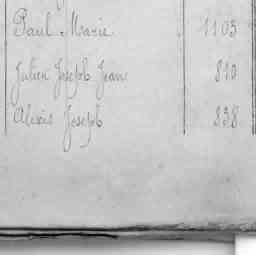 Paul Marie 1103
Julien Joseph Jean 810
Alexis Joseph 838